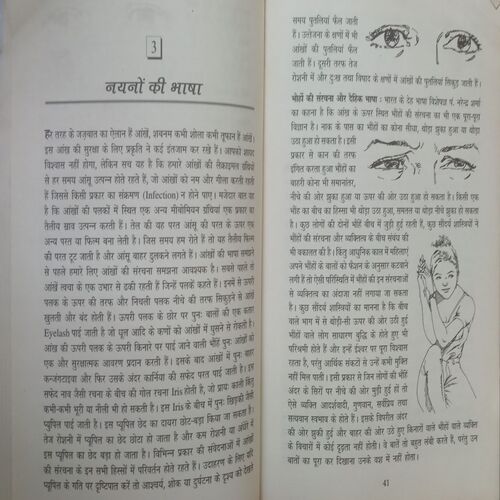 3
नयनों की भाषा
हर तरह के जज़्बात का ऐलान हैं आंखें, शबनम कभी शोला कभी तूफान हैं आंखें।
इस आंख की सुरक्षा के लिए प्रकृति ने कई इंतजाम कर रखे हैं। आपको शायद
विश्वास नहीं होगा, लेकिन सच यह है कि हमारे आंखों की लैकाइमल ग्रंथियों
से हर समय आंसू उत्पन्न होते रहते हैं, जो आंखों को नम और गीला करती रहती
हैं जिससे किसी प्रकार का संक्रमण (Infection) न होने पाए। मजेदार बात यह
है कि आंखों की पलकों में स्थित एक अन्य मीबोमियन ग्रंथियां एक प्रकार का
तैलीय स्राव उत्पन्न करती हैं। तेल की वह परत आंसू की परत के ऊपर एक
अन्य परत या फिल्म बना लेती है। जिस समय हम रोते हैं तो यह तैलीय फिल्म
की परत टूट जाती है और आंसू बाहर ढुलकने लगते हैं। आंखों की भाषा समझने
से पहले हमारे लिए आंखों की संरचना समझना आवश्यक है। सबसे पहले तो
आंखें त्वचा के एक उभार से ढकी रहती हैं जिन्हें पलकें कहते हैं। इनमें से ऊपरी
पलक के ऊपर की तरफ और निचली पलक नीचे की तरफ सिकुड़ने से आंखें
खुलती और बंद होती हैं। ऊपरी पलक के छोर पर पुनः बालों की एक कतार
Eyelash पाई जाती है जो धूल आदि के कणों को आंखों में घुसने से रोकती है।
आंख की ऊपरी पलक के ऊपरी किनारे पर पाई जाने वाली भौंहें पुनः आंखों को
एक और सुरक्षात्मक आवरण प्रदान करती हैं। इसके बाद आंखों में पुनः बाहर
कन्जंगटाइवा और फिर उसके अंदर कार्निया की सफेद परत पाई जाती है। इस
सफेद नाव जैसी रचना के बीच की गोल रचना Iris होती है, जो प्रायः काली किंतु
कभी-कभी भूरा या नीली भी हो सकती है। इस Iris के बीच में पुनः खिड़की जैसी
प्यूपिल पाई जाती है। इस प्यूपिल छेद का दायरा छोट-बड़ा किया जा सकता है।
तेज रोशनी में प्यूपिल का छेद छोटा हो जाता है और कम रोशनी या अंधेरे में
इस प्यूपिल का छेद बड़ा हो जाता है। विभिन्न प्रकार की संवेदनाओं में आंखों
की संरचना के इन सभी हिस्सों में परिवर्तन होते रहते हैं। उदाहरण के लिए यदि
प्यूपिल के गति पर दृष्टिपात करें तो आश्चर्य, शोक या दुर्घटना के दृश्य को देखते
समय पुतलियां फैल जाती
हैं। उत्तेजना के क्षणों में भी
आंखों की पुतलियां फैल
जाती हैं। दूसरी तरफ तेज
रोशनी में और दुःख तथा विषाद के क्षणों में आंखों की पुतलियां सिकुड़ जाती हैं।
भौंहों की संरचना और दैहिक भाषा : भारत के देह भाषा विशेषज्ञ पं. नरेन्द्र शर्मा
का कहना है कि आंख के ऊपर स्थित भौंहों की संरचना का भी एक पूरा-पूरा
विज्ञान है। नाक के पास का भौंहों का कोना सीधा, थोड़ा झुका हुआ या थोड़ा
उठा हुआ हो सकता है। इसी
प्रकार से कान की तरफ
इंगित करता हुआ भौंहों का
बाहरी कोना भी समानांतर,
नीचे की ओर झुका हुआ या ऊपर की ओर उठा हुआ हो सकता है। किसी एक
भौंह का बीच का हिस्सा भी थोड़ा उठा हुआ, समतल या थोड़ा नीचे झुका हो सकता
है। कुछ लोगों की दोनों भौंहें बीच में जुड़ी हुई रहती हैं, कुछ सौंदर्य शास्त्रियों ने
भौंहों की संरचना और व्यक्तित्व के बीच संबंध की
भी वकालत की है। किंतु आधुनिक काल में महिलाएं
अपने भौंहों के बालों को फैशन के अनुसार कटवाने
लगी हैं तो ऐसी परिस्थिति में भौंहों की इन संरचनाओं
से व्यक्तित्व का अंदाजा नहीं लगाया जा सकता
है। कुछ सौंदर्य शास्त्रियों का मानना है कि बीच
वाले भाग में से थोड़ी-सी ऊपर की ओर उठी हुई
भौंहों वाले लोग साधारण बुद्धि के होते हुए भी
परिश्रमी होते हैं और इन्हें ईश्वर पर पूरा विश्वास
रहता है, परंतु आर्थिक संकटों से उन्हें कभी मुक्ति
नहीं मिल पाती। इसी प्रकार से जिन लोगों की भौंहें
अंदर के सिरों पर नीचे की ओर मुड़ी हुई हों तो
ऐसे व्यक्ति आदर्शवादी, गुणवान, सर्वप्रिय तथा
सत्यवान स्वभाव के होते हैं। इसके विपरीत अंदर
की ओर झुकी हुई और बाहर की ओर उठे हुए किनारों वाले भौंहों वाले व्यक्ति
के विचारों में कोई दृढ़ता नहीं होती। वे बातें तो बहुत लंबी करते हैं, परंतु उन
बातों का पूरा कर दिखाना उनके वश में नहीं होता।
41